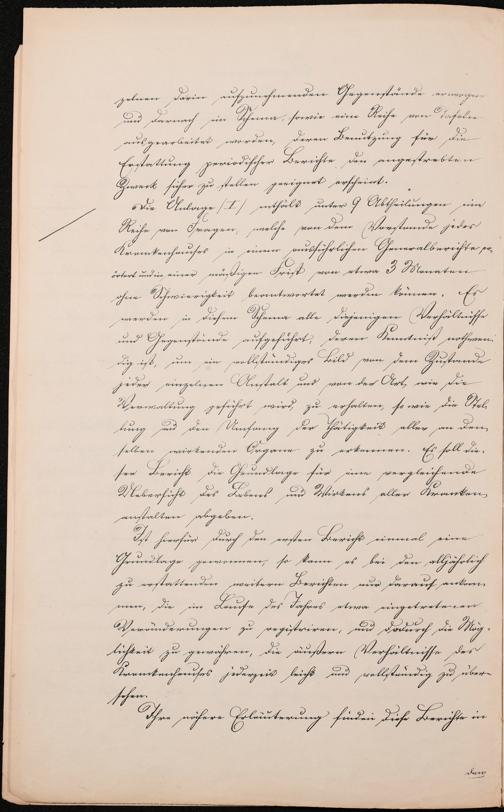 zelnen darin aufzunehmenden Gegenstände erwogen
und darnach ein Schema, sowie eine Reihe von Tafeln
ausgearbeitet worden, deren Benutzung für die
Erstattung periodischer Berichte den angestrebten
Zweck sicher zu stellen geeignet erscheint.
Die Anlage /I/ enthält unter 9 Abtheilungen eine
Reihe von Fragen, welche von dem Vorstande jedes
Krankenhauses in einem ausführlichen Generalberichte er-
örtert und in einer mäßigen Frist von etwa 3 Monaten
ohne Schwierigkeit beantwortet werden können. Es
werden in diesem Schema alle diejenigen Verhältnisse
und Gegenstände aufgeführt, deren Kenntniß nothwen-
dig ist, um ein vollständiges Bild von dem Zustande
jeder einzelnen Anstalt und von der Art, wie die
Verwaltung geführt wird, zu erhalten, so wie die Stel-
lung und den Umfang der Thätigkeit aller an den-
selben wirkenden Organe zu erkennen. Es soll die-
ser Bericht die Grundlage für eine vergleichende
Uebersicht des Lebens und Wirkens aller Kranken-
anstalten abgeben.
Ist hierfür durch den ersten Bericht einmal eine
Grundlage gewonnen, so kann es bei den alljährlich
zu erstattenden weitern Berichten nur darauf ankom-
men, die im Laufe des Jahres etwa eingetretenen
Veränderungen zu registriren, und dadurch die Mög-
lichkeit zu gewähren, die äußern Verhältnisse des
Krankenhauses jederzeit leicht und vollständig zu über-
sehen.
Ihre nähere Erläuterung finden diese Berichte in
den